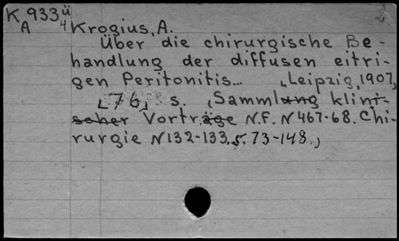 K 933ü
A 4 Krogius, A.
Über die chirurgische Be-
handlung der diffusen eitri-
gen Peritonitis... Leipzig, 1907,
76, s. (Sammlung klini-
scher Vorträge N.F. N467-68. Chi-
rurgie N132-133. s. 73-148.)